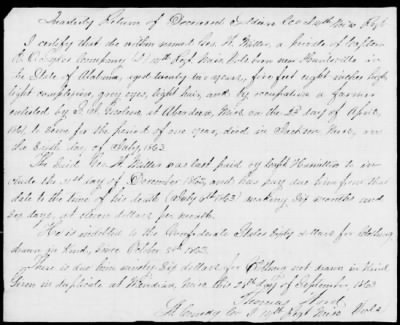 Quarterly Return of Deceased Soldier Co. 14th Miss Regt
I certify that the within named Geo. H. Miller, a private of Captain
Company 14th Regt Miss Vols born near Huntsville in
the State of Alabama, aged twenty two years, five feet eight inches high
light complexion, grey eyes, light hair, and by occupation a farmer
enlisted by at Aberdeen, Miss on the 23d day of April,
1861, to serve for the period of one year, died in Jackson Miss, on
the day of July 1863
The said Geo. H. Miller was last paid by Capt Hamilton to in-
clude the 31st day of December 1862, and has pay due him from that
date to the time of his death (July 6th 1863) making Six months and
Six days, at eleven dollars per month.
He is indebted to the Confederate States dollars for Clothing
drawn in kind, since October
There is due him ninety Six dollars for Clothing not drawn in kind
Given in duplicate at Meridian, Miss this 25th day of September, 1863
Thomas
Comdg Co. 14th Regt Miss Vols